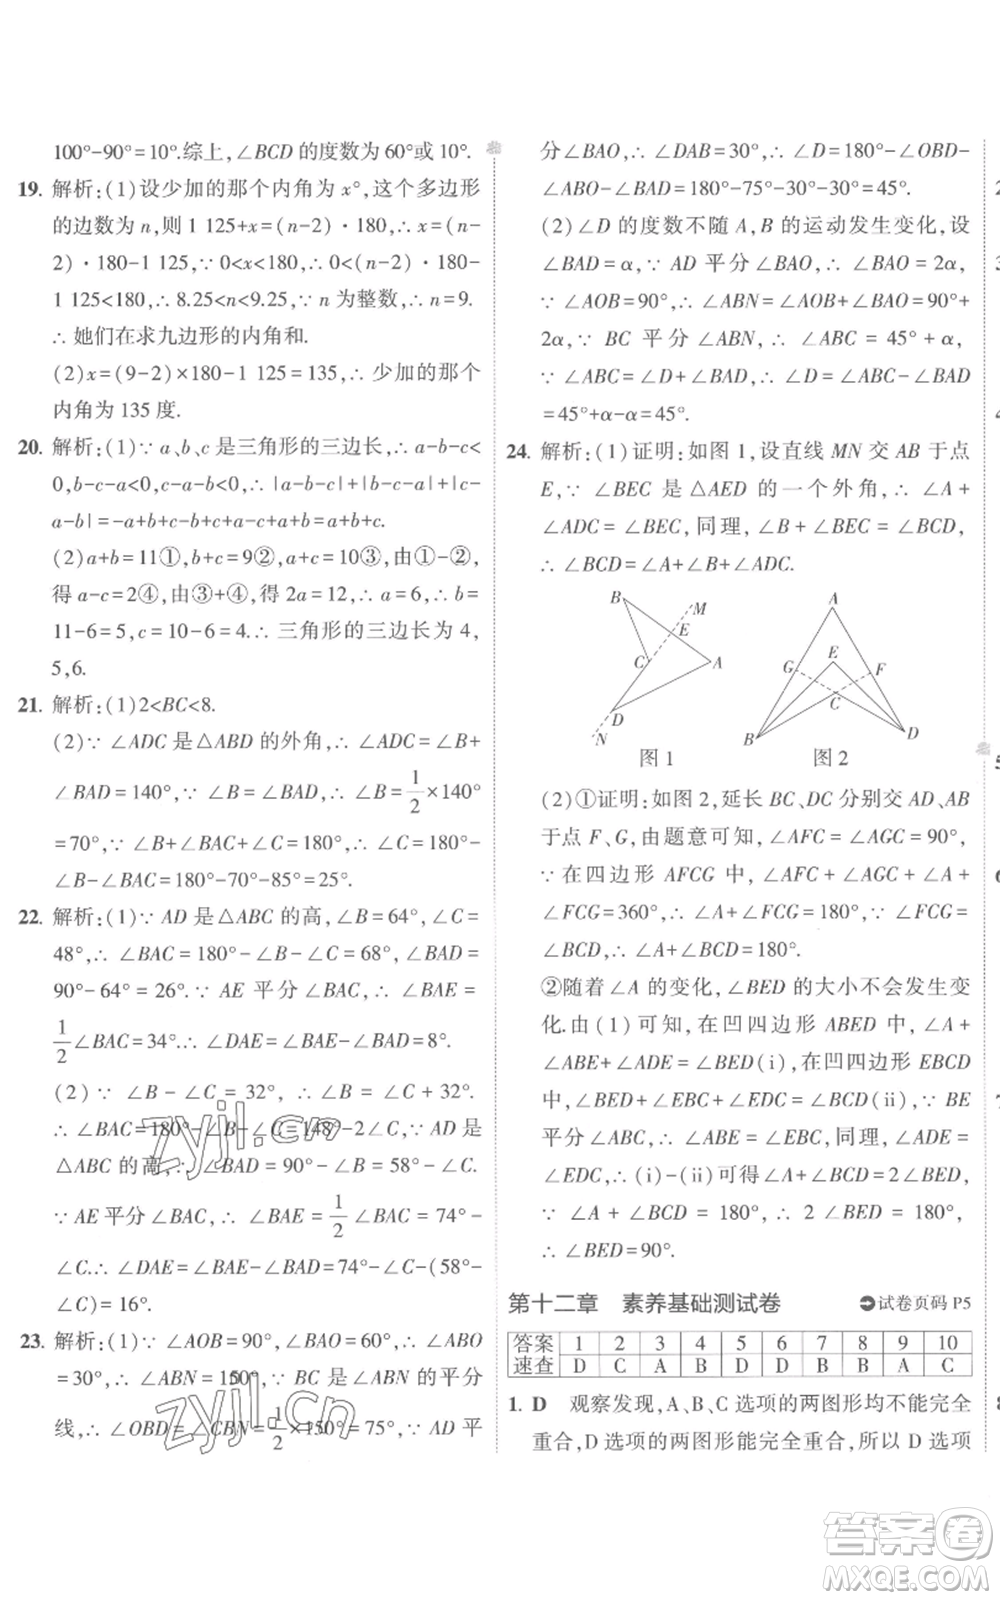 100°-90°=10°.综上,∠BCD的度数为60°或10°.
19. 解析:(1)设少加的那个内角为x°,这个多边形
的边数为n,则1 125+x=(n-2)·180,∴x=(n-
2)·180-1 125,∵0<x<180,∴0<(n-2)·180-
1 125<180,∴8.25<n<9.25,∵n为整数,∴n=9.
∴她们在求九边形的内角和.
(2)x=(9-2)×180-1 125=135,∴少加的那个
内角为135度.
20. 解析:(1)∵a、b、c是三角形的三边长,∴a-b-c<
0,b-c-a<0,c-a-b<0,∴|a-b-c|+|b-c-a|+|c-
a-b|=-a+b+c-b+c+a-c+a+b=a+b+c.
(2)a+b=11①,b+c=9②,a+c=10③,由①-②,
得a-c=2④,由③+④,得2a=12,∴a=6,∴b=
11-6=5,c=10-6=4.∴三角形的三边长为4,
5,6.
21. 解析:(1)2<BC<8.
(2)∵∠ADC是△ABD的外角,∴∠ADC=∠B+
∠BAD=140°,∵∠B=∠BAD,∴∠B=1/2×140°
=70°,∵∠B+∠BAC+∠C=180°,∴∠C=180°-
∠B-∠BAC=180°-70°-85°=25°.
22. 解析:(1)∵AD是△ABC的高,∠B=64°,∠C=
48°,∴∠BAC=180°-∠B-∠C=68°,∠BAD=
90°-64°=26°.∵AE平分∠BAC,∴∠BAE=
1/2∠BAC=34°.∴∠DAE=∠BAE-∠BAD=8°.
(2)∵∠B-∠C=32°,∴∠B=∠C+32°.
∴∠BAC=180°-∠B-∠C=148°-2∠C.∵AD是
△ABC的高,∴∠BAD=90°-∠B=58°-∠C.
∵AE平分∠BAC,∴∠BAE=1/2∠BAC=74°-
∠C.∴∠DAE=∠BAE-∠BAD=74°-∠C-(58°-
∠C)=16°.
23. 解析:(1)∵∠AOB=90°,∠BAO=60°,∴∠ABO
=30°,∴∠ABN=150°,∵BC是∠ABN的平分
线,∴∠OBD=∠CBN=1/2×150°=75°,∵AD平
分∠BAO,∴∠DAB=30°,∴∠D=180°-∠OBD-
∠ABO-∠BAD=180°-75°-30°-30°=45°.
(2)∠D的度数不随A,B的运动发生变化,设
∠BAD=α,∵AD平分∠BAO,∴∠BAO=2α,
∵∠AOB=90°,∴∠ABN=∠AOB+∠BAO=90°+
2α,∵BC平分∠ABN,∴∠ABC=45°+α,
∵∠ABC=∠D+∠BAD,∴∠D=∠ABC-∠BAD
=45°+α-α=45°.
24. 解析:(1)证明:如图1,设直线MN交AB于点
E,∵∠BEC是△AED的一个外角,∴∠A+
∠ADC=∠BEC,同理,∠B+∠BEC=∠BCD,
∴∠BCD=∠A+∠B+∠ADC.
B M E C A D N
图1
A G E F C B D
图2
(2)①证明:如图2,延长BC、DC分别交AD、AB
于点F、G,由题意可知,∠AFC=∠AGC=90°,
∵在四边形AFCG中,∠AFC+∠AGC+∠A+
∠FCG=360°,∴∠A+∠FCG=180°,∵∠FCG=
∠BCD,∴∠A+∠BCD=180°.
②随着∠A的变化,∠BED的大小不会发生变
化.由(1)可知,在凹四边形ABED中,∠A+
∠ABE+∠ADE=∠BED(i),在凹四边形EBCD
中,∠BED+∠EBC+∠EDC=∠BCD(ii),∵BE
平分∠ABC,∴∠ABE=∠EBC,同理,∠ADE=
∠EDC,∴(i)-(ii)可得∠A+∠BCD=2∠BED,
∵∠A+∠BCD=180°,∴2∠BED=180°,
∴∠BED=90°.
第十二章 素养基础测试卷 试卷页码 P5
答案速查 1 2 3 4 5 6 7 8 9 10
D C A B D D B B A C
1. D 观察发现,A、B、C选项的两图形均不能完全
重合,D选项的两图形能完全重合,所以D选项
zyjl.cn
zyjl.cn
答案圈
MXQE.COM